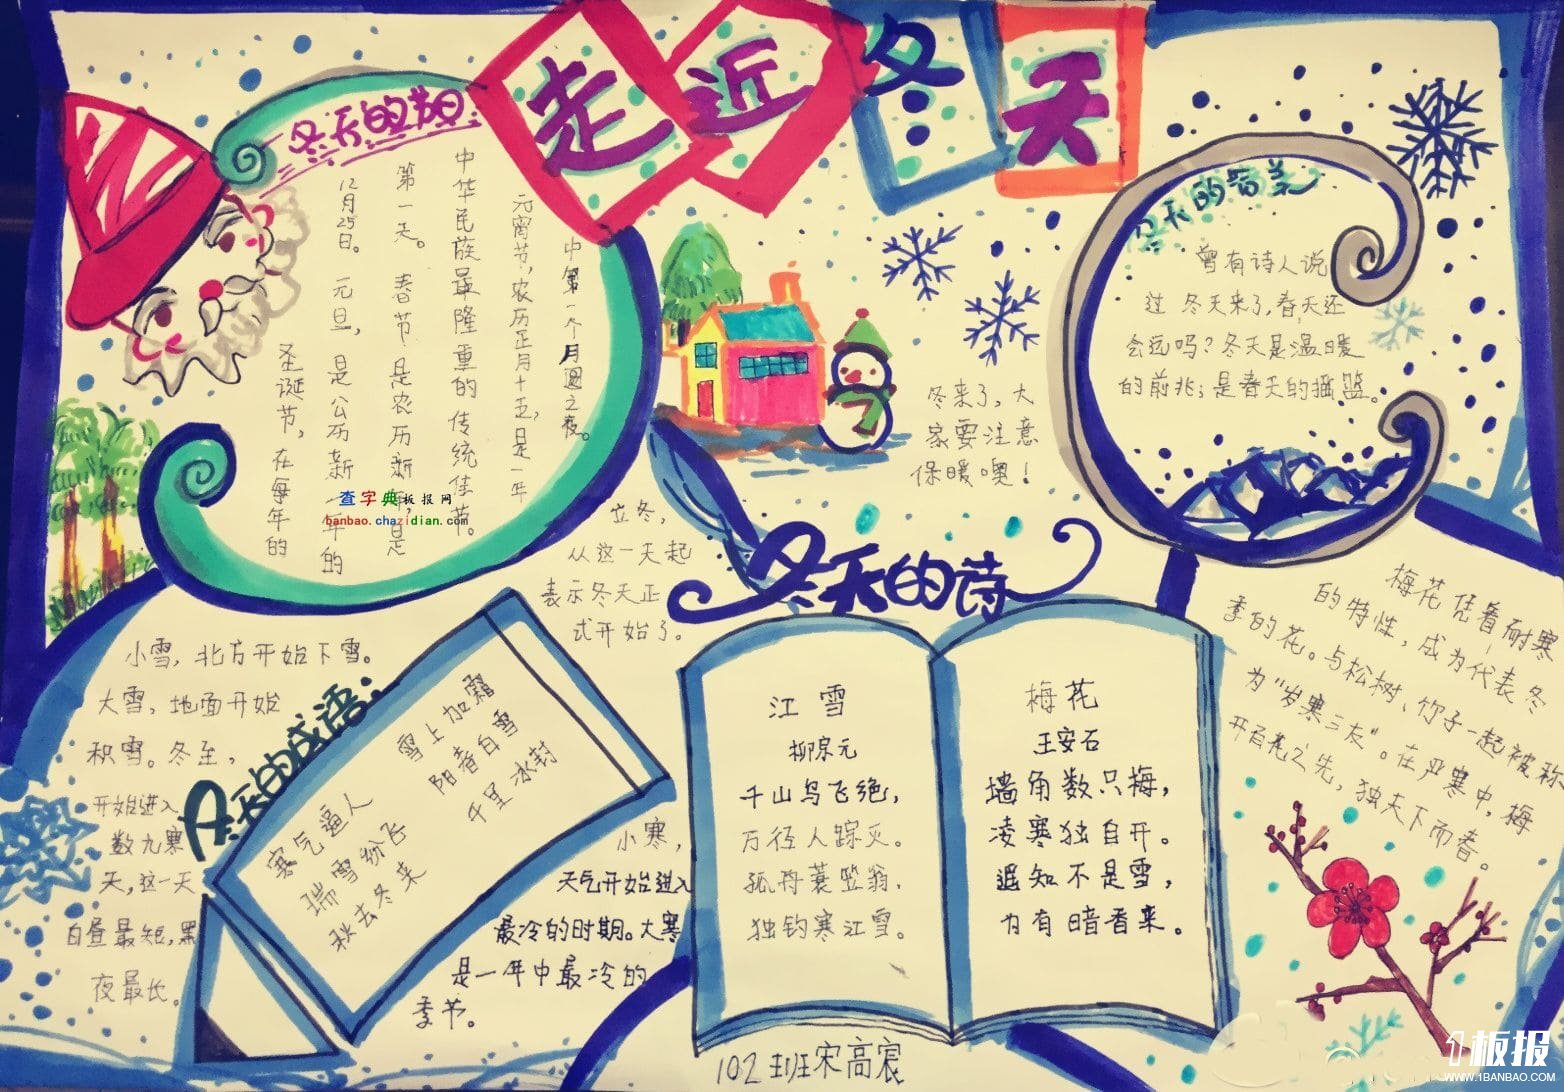 走近冬天
冬天的节日
圣诞节，在每年的
12月25日。元旦，是公历新年的
第一天。春节是农历新年，是
中华民族最隆重的传统佳节。
元宵节，农历正月十五，是一年
中第一个月圆之夜。
查字典板报网
banbao.chazidian.com
冬来了，大
家要注意
保暖噢！
曾有诗人说
过 冬天来了，春天还
会远吗？冬天是温暖
的前兆；是春天的摇篮。
立冬，
从这一天起
表示冬天正
式开始了。
小雪，北方开始下雪。
大雪，地面开始
积雪。冬至，
开始进入
数九寒
天，这一天
白昼最短，黑
夜最长。
冬天的成语：
寒气逼人
瑞雪纷飞
秋去冬来
雪上加霜
阳春白雪
千里冰封
小寒，
天气开始进入
最冷的时期。大寒
是一年中最冷的
季节。
冬天的诗
江雪
柳宗元
千山鸟飞绝，
万径人踪灭。
孤舟蓑笠翁，
独钓寒江雪。
梅花
王安石
墙角数只梅，
凌寒独自开。
遥知不是雪，
为有暗香来。
梅花凭着耐寒
的特性，成为代表冬
季的花。与松树、竹子一起被称
为“岁寒三友”。在严寒中，梅
开百花之先，独天下而春。
102班宋高宸
1板报
WWW.1BANBAO.COM